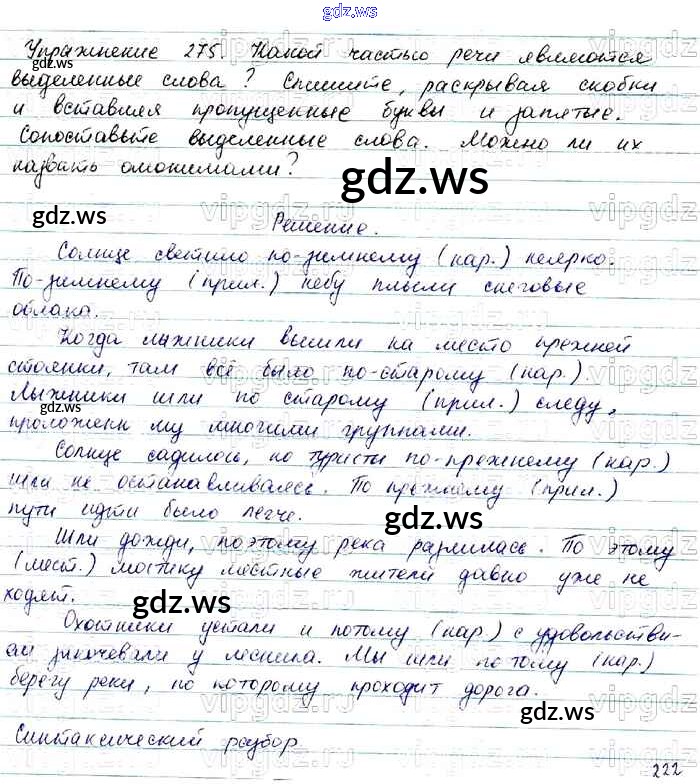 gdz.ws
Упражнение 275. Какой частью речи являются
выделенные слова? Спишите, раскрывая скобки
и вставляя пропущенные буквы и запятые.
Сопоставьте выделенные слова. Можно ли их
назвать омонимами?
gdz.ws
gdz.ws
Решение.
Солнце светило по-зимнему (нар.) неярко.
gdz.ws
По-зимнему (прил.) небу плыли снеговые
облака.
Когда лыжники вышли на место прежней
стоянки, там всё было по-старому (нар.).
Лыжники шли по старому (прил.) следу,
gdz.ws
проложенн му многими группами.
Солнце садилось, но туристы по-прежнему (нар.)
шли не останавливаясь. По прежнему (прил.)
пути идти было легче.
gdz.ws
Шли дожди, поэтому река разлилась. По этому
(мест.) мостику местные жители давно уже не
ходят.
gdz.ws
Охотники устали и потому (нар.) с удовольстви-
ем заночевали у лесника. Мы шли по тому (нар.)
берегу реки, по которому проходит дорога.
gdz.ws
Синтаксический разбор
gdz.ws
222